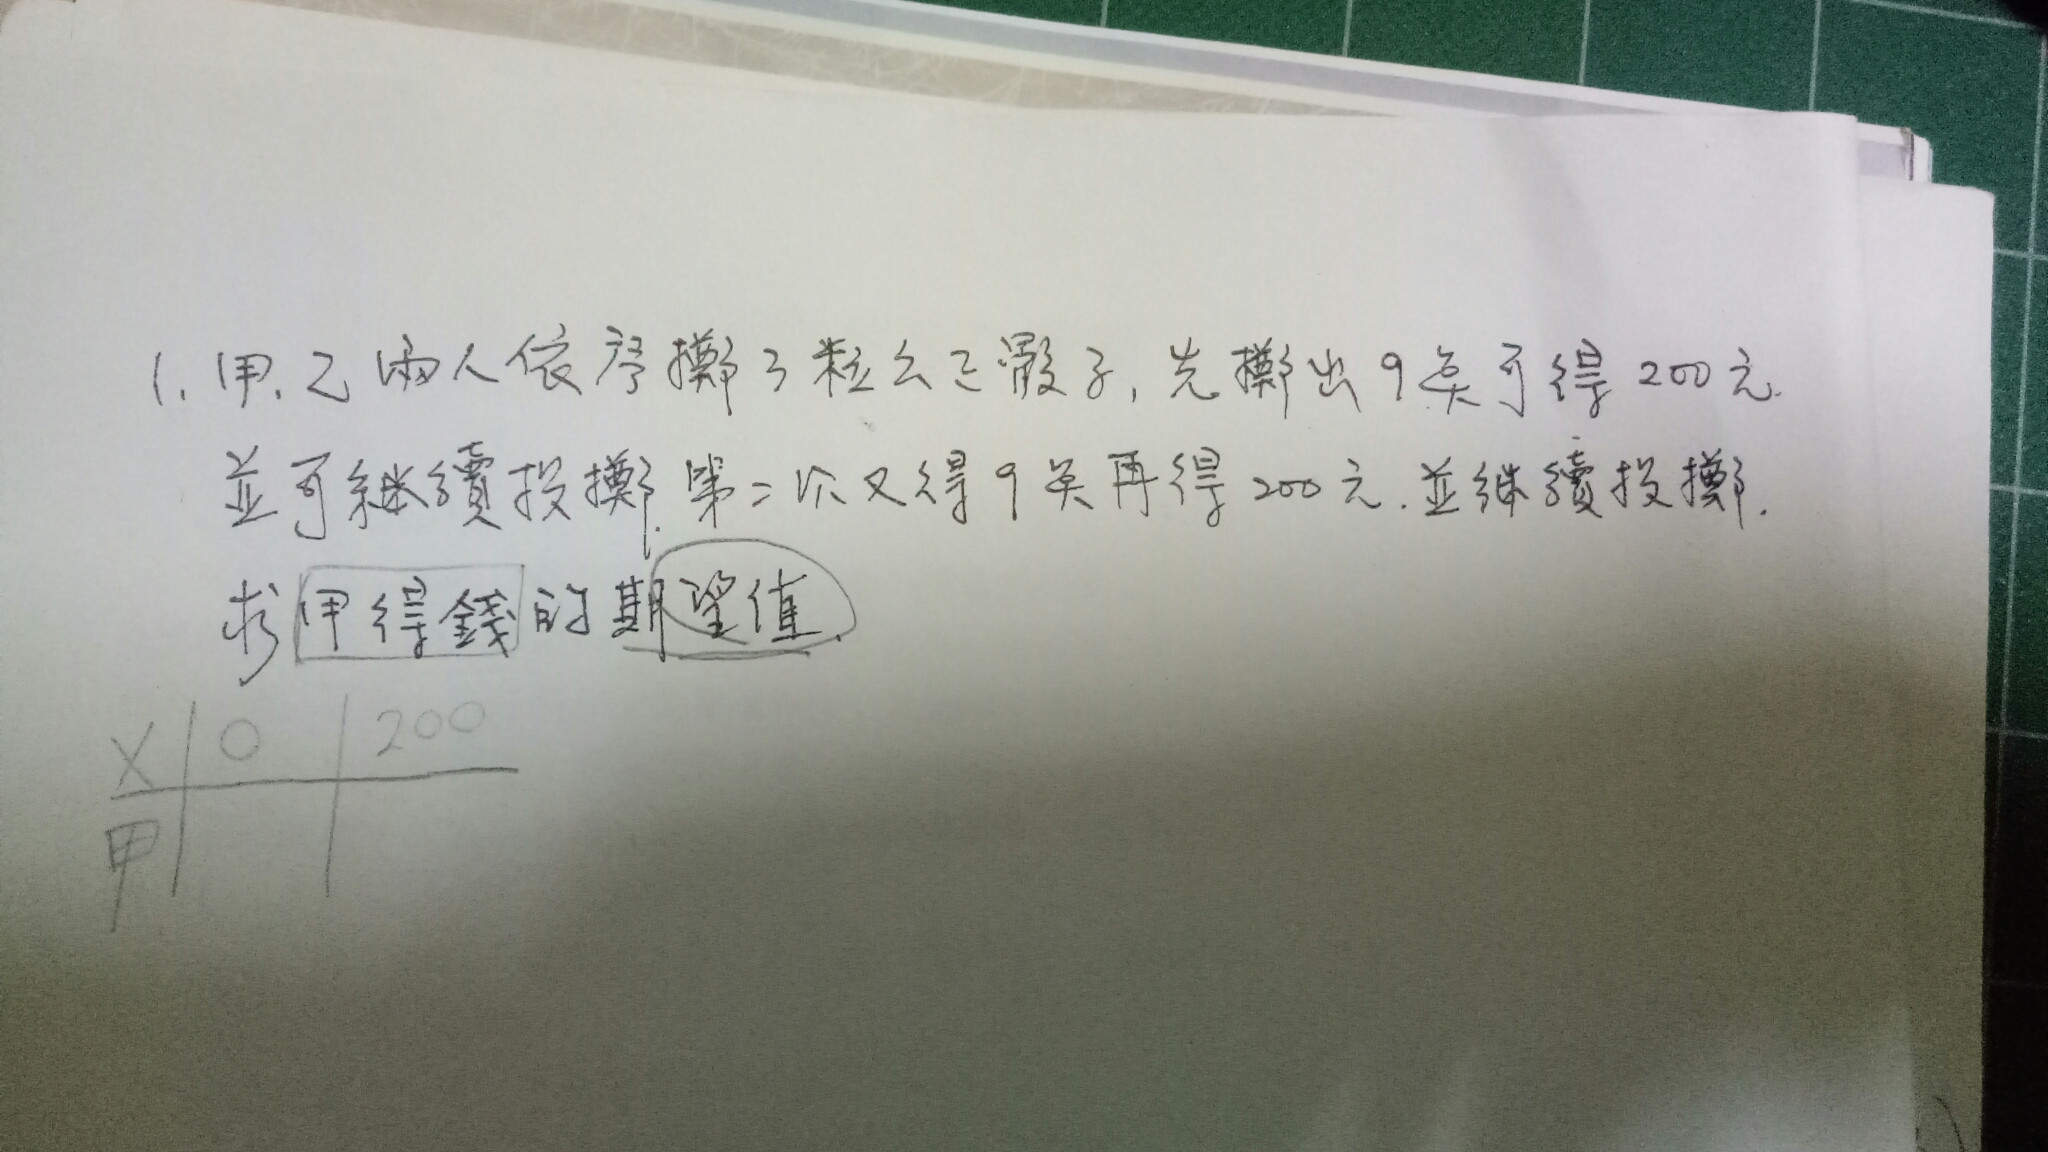 1. 甲、乙兩人依序擲3粒公正骰子, 先擲出9点可得200元.
並可継續投擲. 第二次又得9点再得200元. 並継續投擲.
求甲得錢的期望值.
X 0 200
甲